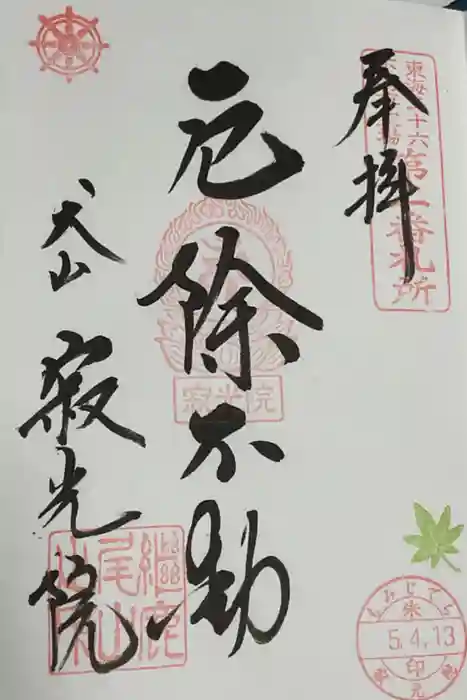 奉拝
東海三十六
不動尊霊場
第一番札所
厄除不動
寂光院
犬山
寂光院
継鹿
尾山
もみじでら
朱
5.4.13
印